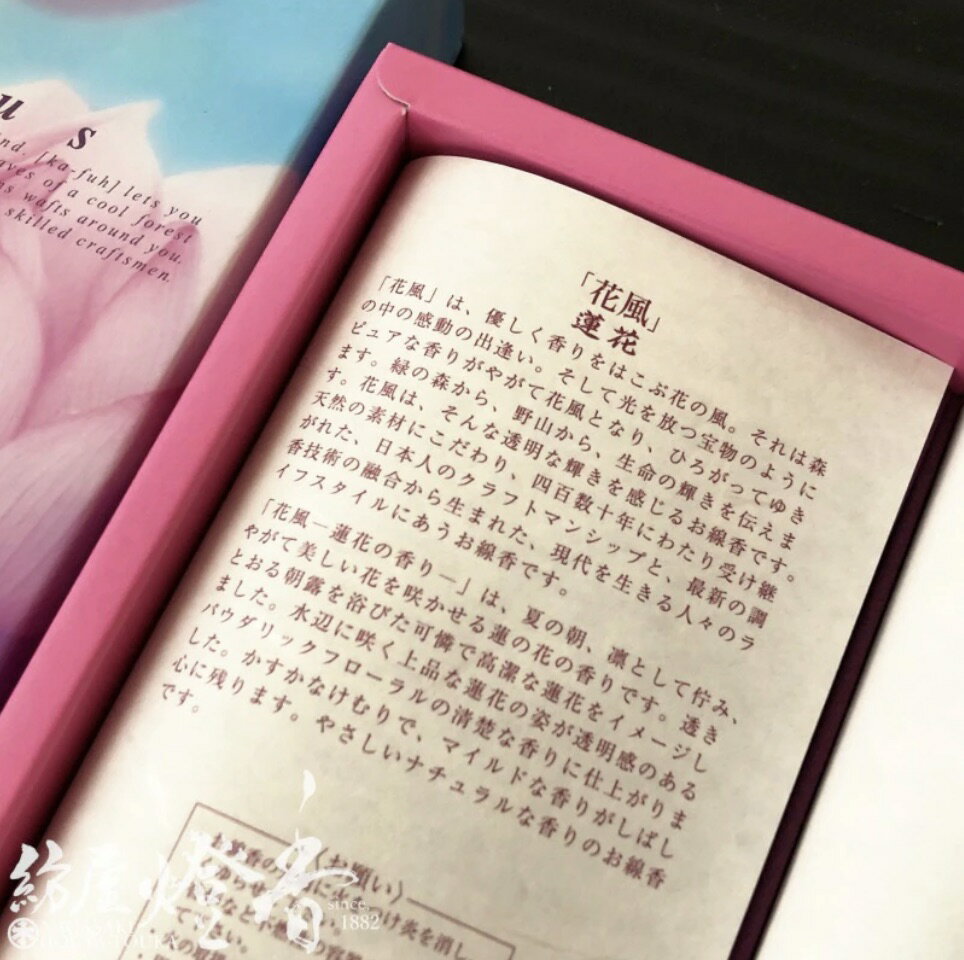 u s
ind. [ka-fuh] lets you
aves of a cool forest
ns wafts around you.
skilled craftsmen.
「花風」
蓮花
「花風」は、優しく香りをはこぶ花の風。それは森
の中の感動の出逢い。そして光を放つ宝物のように
ピュアな香りがやがて花風となり、ひろがってゆき
ます。緑の森から、野山から、生命の輝きを伝えま
す。花風は、そんな透明な輝きを感じるお線香です。
天然の素材にこだわり、四百数十年にわたり受け継
がれた、日本人のクラフトマンシップと、最新の調
香技術の融合から生まれた、現代を生きる人々のラ
イフスタイルにあうお線香です。
「花風―蓮花の香り―」は、夏の朝、凛として佇み、
やがて美しい花を咲かせる蓮の花の香りです。透き
とおる朝露を浴びた可憐で高潔な蓮花をイメージし
ました。水辺に咲く上品な蓮花の姿が透明感のある
パウダリックフローラルの清楚な香りに仕上がりま
した。かすかなけむりで、マイルドな香りがしばし
心に残ります。やさしいナチュラルな香りのお線香
です。
〈お願い〉
け炎を消し
紡屋燈香
since,
1882